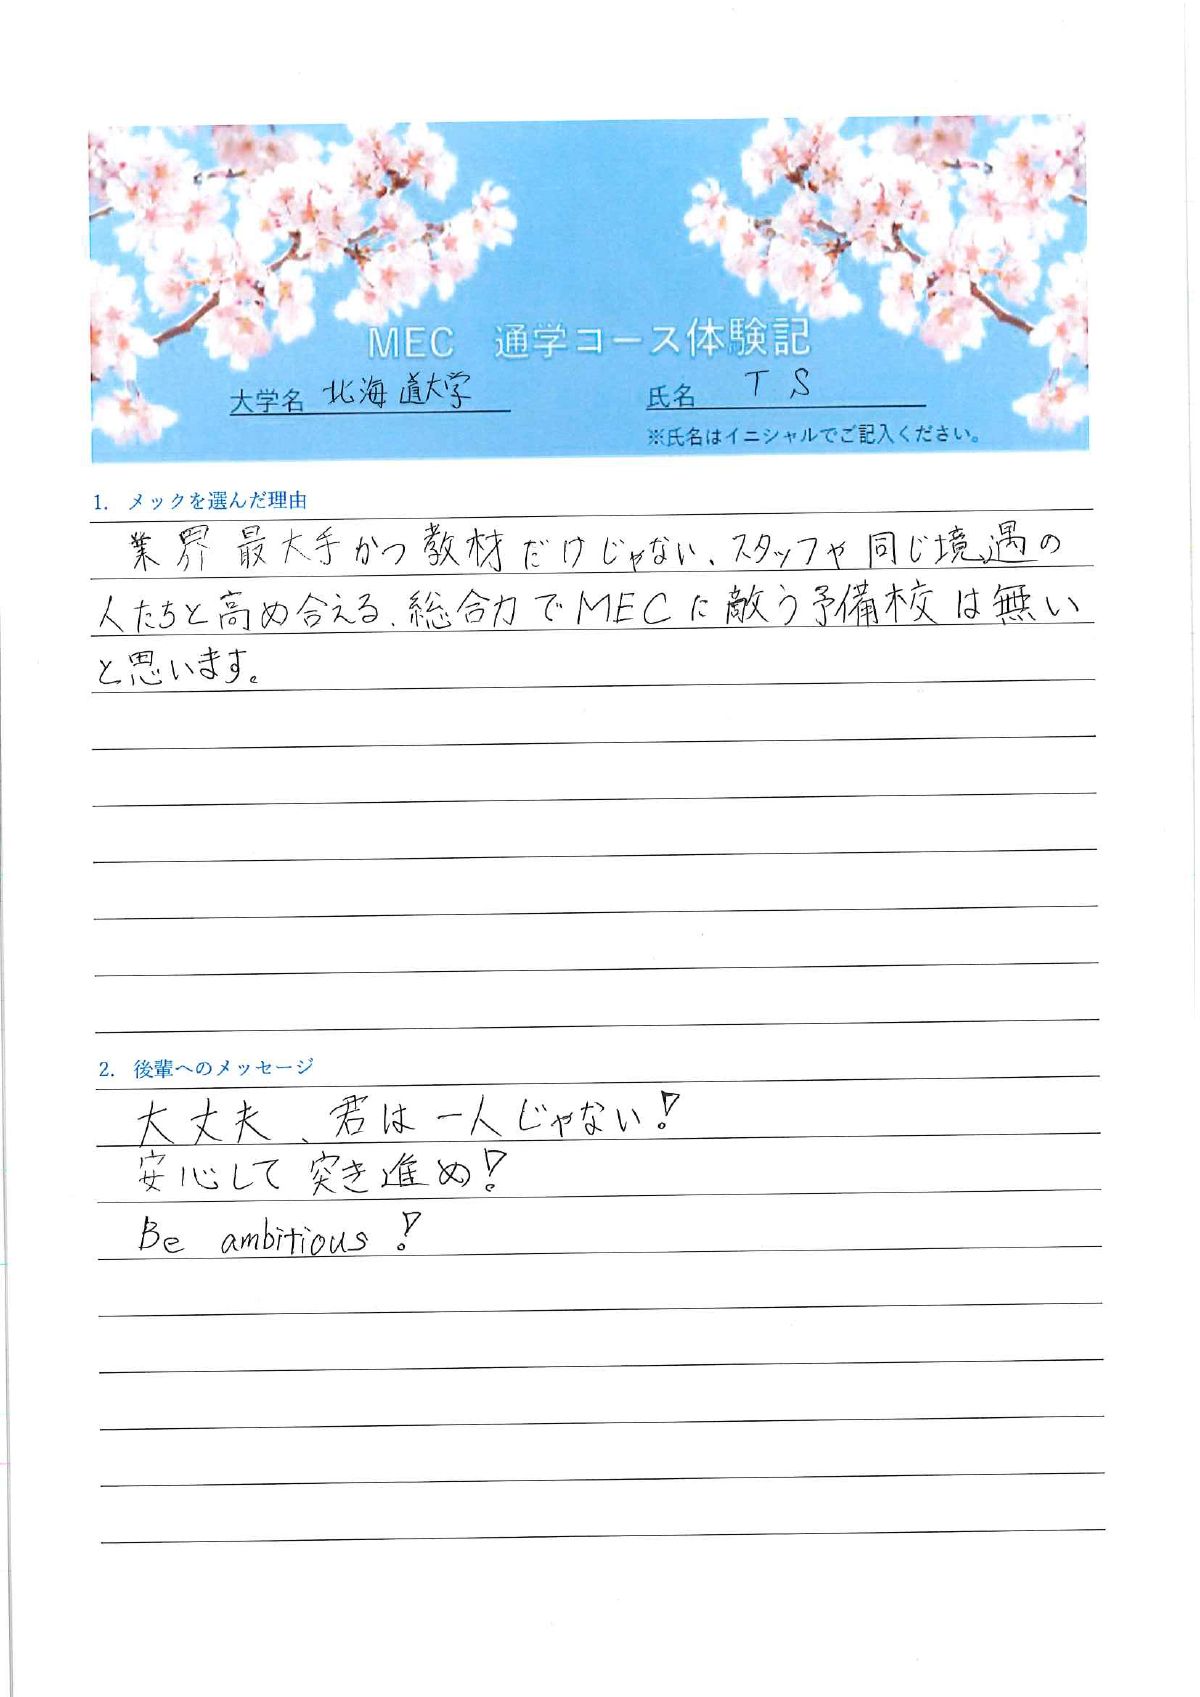 MEC 通学コース体験記
大学名 北海道大学 氏名 T S
※氏名はイニシャルでご記入ください。
1. メックを選んだ理由
業界最大手かつ教材だけじゃない、スタッフや同じ境遇の
人たちと高め合える、総合力でMECに敵う予備校は無い
と思います。
2. 後輩へのメッセージ
大丈夫、君は一人じゃない!
安心して突き進め!
Be ambitious!